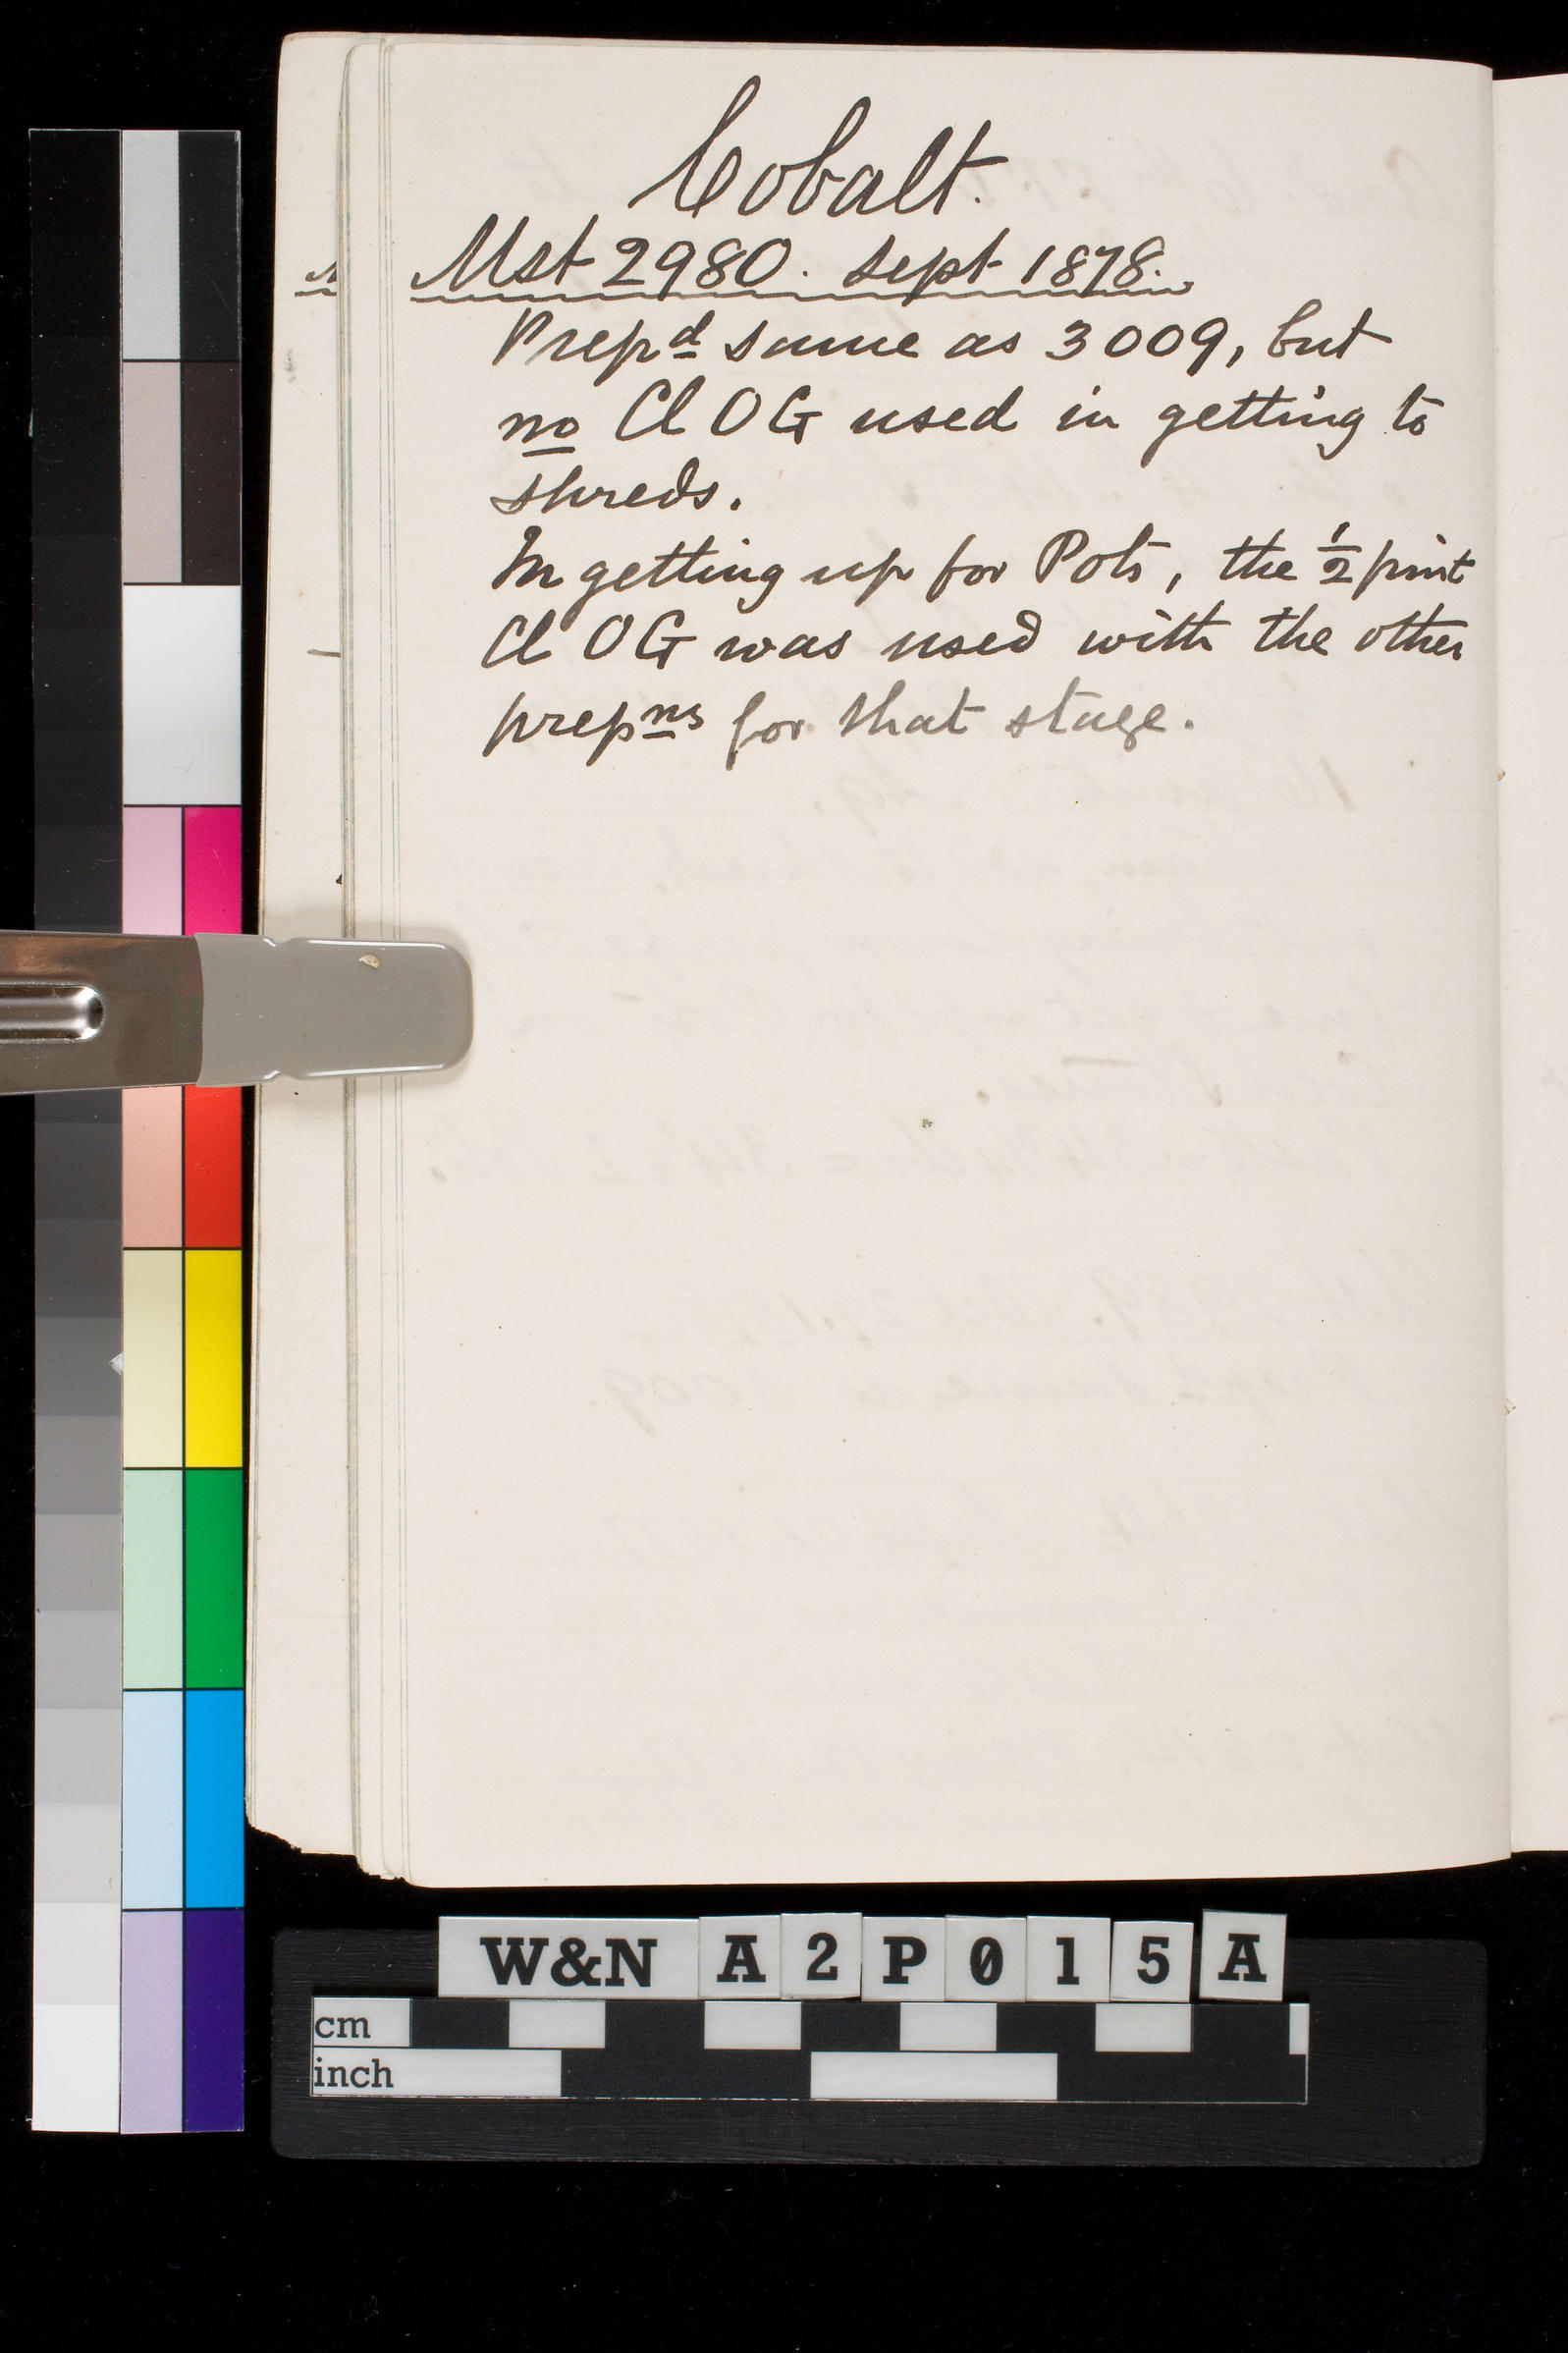 Cobalt.
Mst 2980. Sept 1878.
Prepd same as 3009, but
no Cl OG used in getting to
shreds.
In getting up for Pots, the ½ pint
Cl OG was used with the other
prepns for that stage.
W&N A2P015A
cm
inch